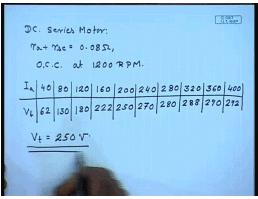 DC. Series Motor:
ra+rse = 0.08Ω,
O.C.C. at 1200 RPM.
Ia | 40 | 80 | 120 | 160 | 200 | 240 | 280 | 320 | 360 | 400
Vt | 62 | 130 | 180 | 222 | 250 | 270 | 280 | 288 | 290 | 292
Vt = 250 V